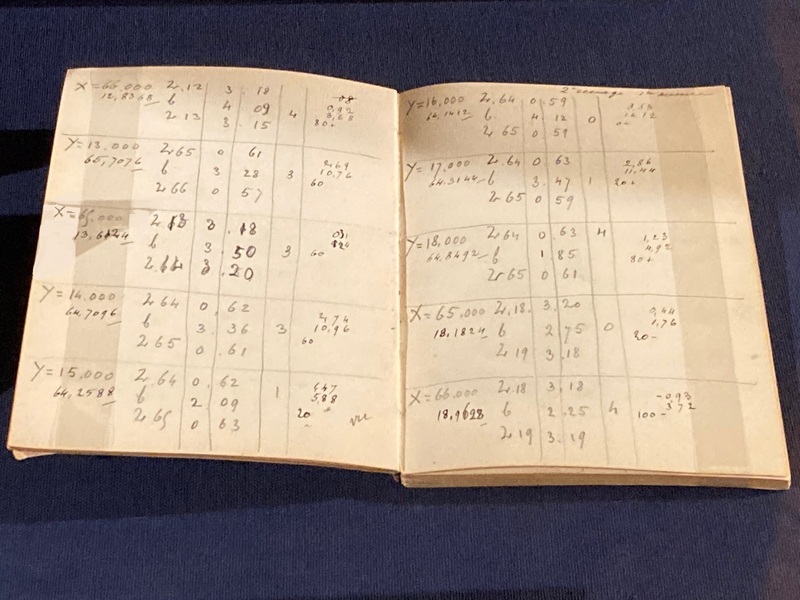 X=66.000 2.12 3 . 18
12,8368 b 4 09 4 0,92
2.13 3 . 15 3,68
80+
Y=13.000 2.65 0 61 2,69
65,7076 b 3 28 3 10,76
2.66 0 57 60
X=65.000 2.13 3 . 18
13,6124 b 3 . 50 3
2.14 3 . 20 60
Y=14.000 2.64 0,62 2,74
64,7096 b 3 . 36 3 10,96
2.65 0 . 61 60
Y=15.000 2.64 0,62 1,47
64,2588 b 2 09 1 5,88
2.65 0 63 20
Y=16,000 2.64 0 . 59
64,1412 b 4 . 12 0
2.65 0 59
Y=17,000 2.64 0 63 2,86
64.3144 b 3 . 47 1 11,44
2.65 0 59 20+
Y=18,000 2.64 0 . 63 4 1,23
64,8492 b 1 . 85 4,92
2.65 0 61 80+
X=65.000 2.18. 3.20 0,44
18,1824 b 2 75 0 1,76
2.19 3.18 20-
X=66.000 2.18 3,18 -0,93
18,9628 b 2 . 25 4 3,72
2.19 3.19 100-